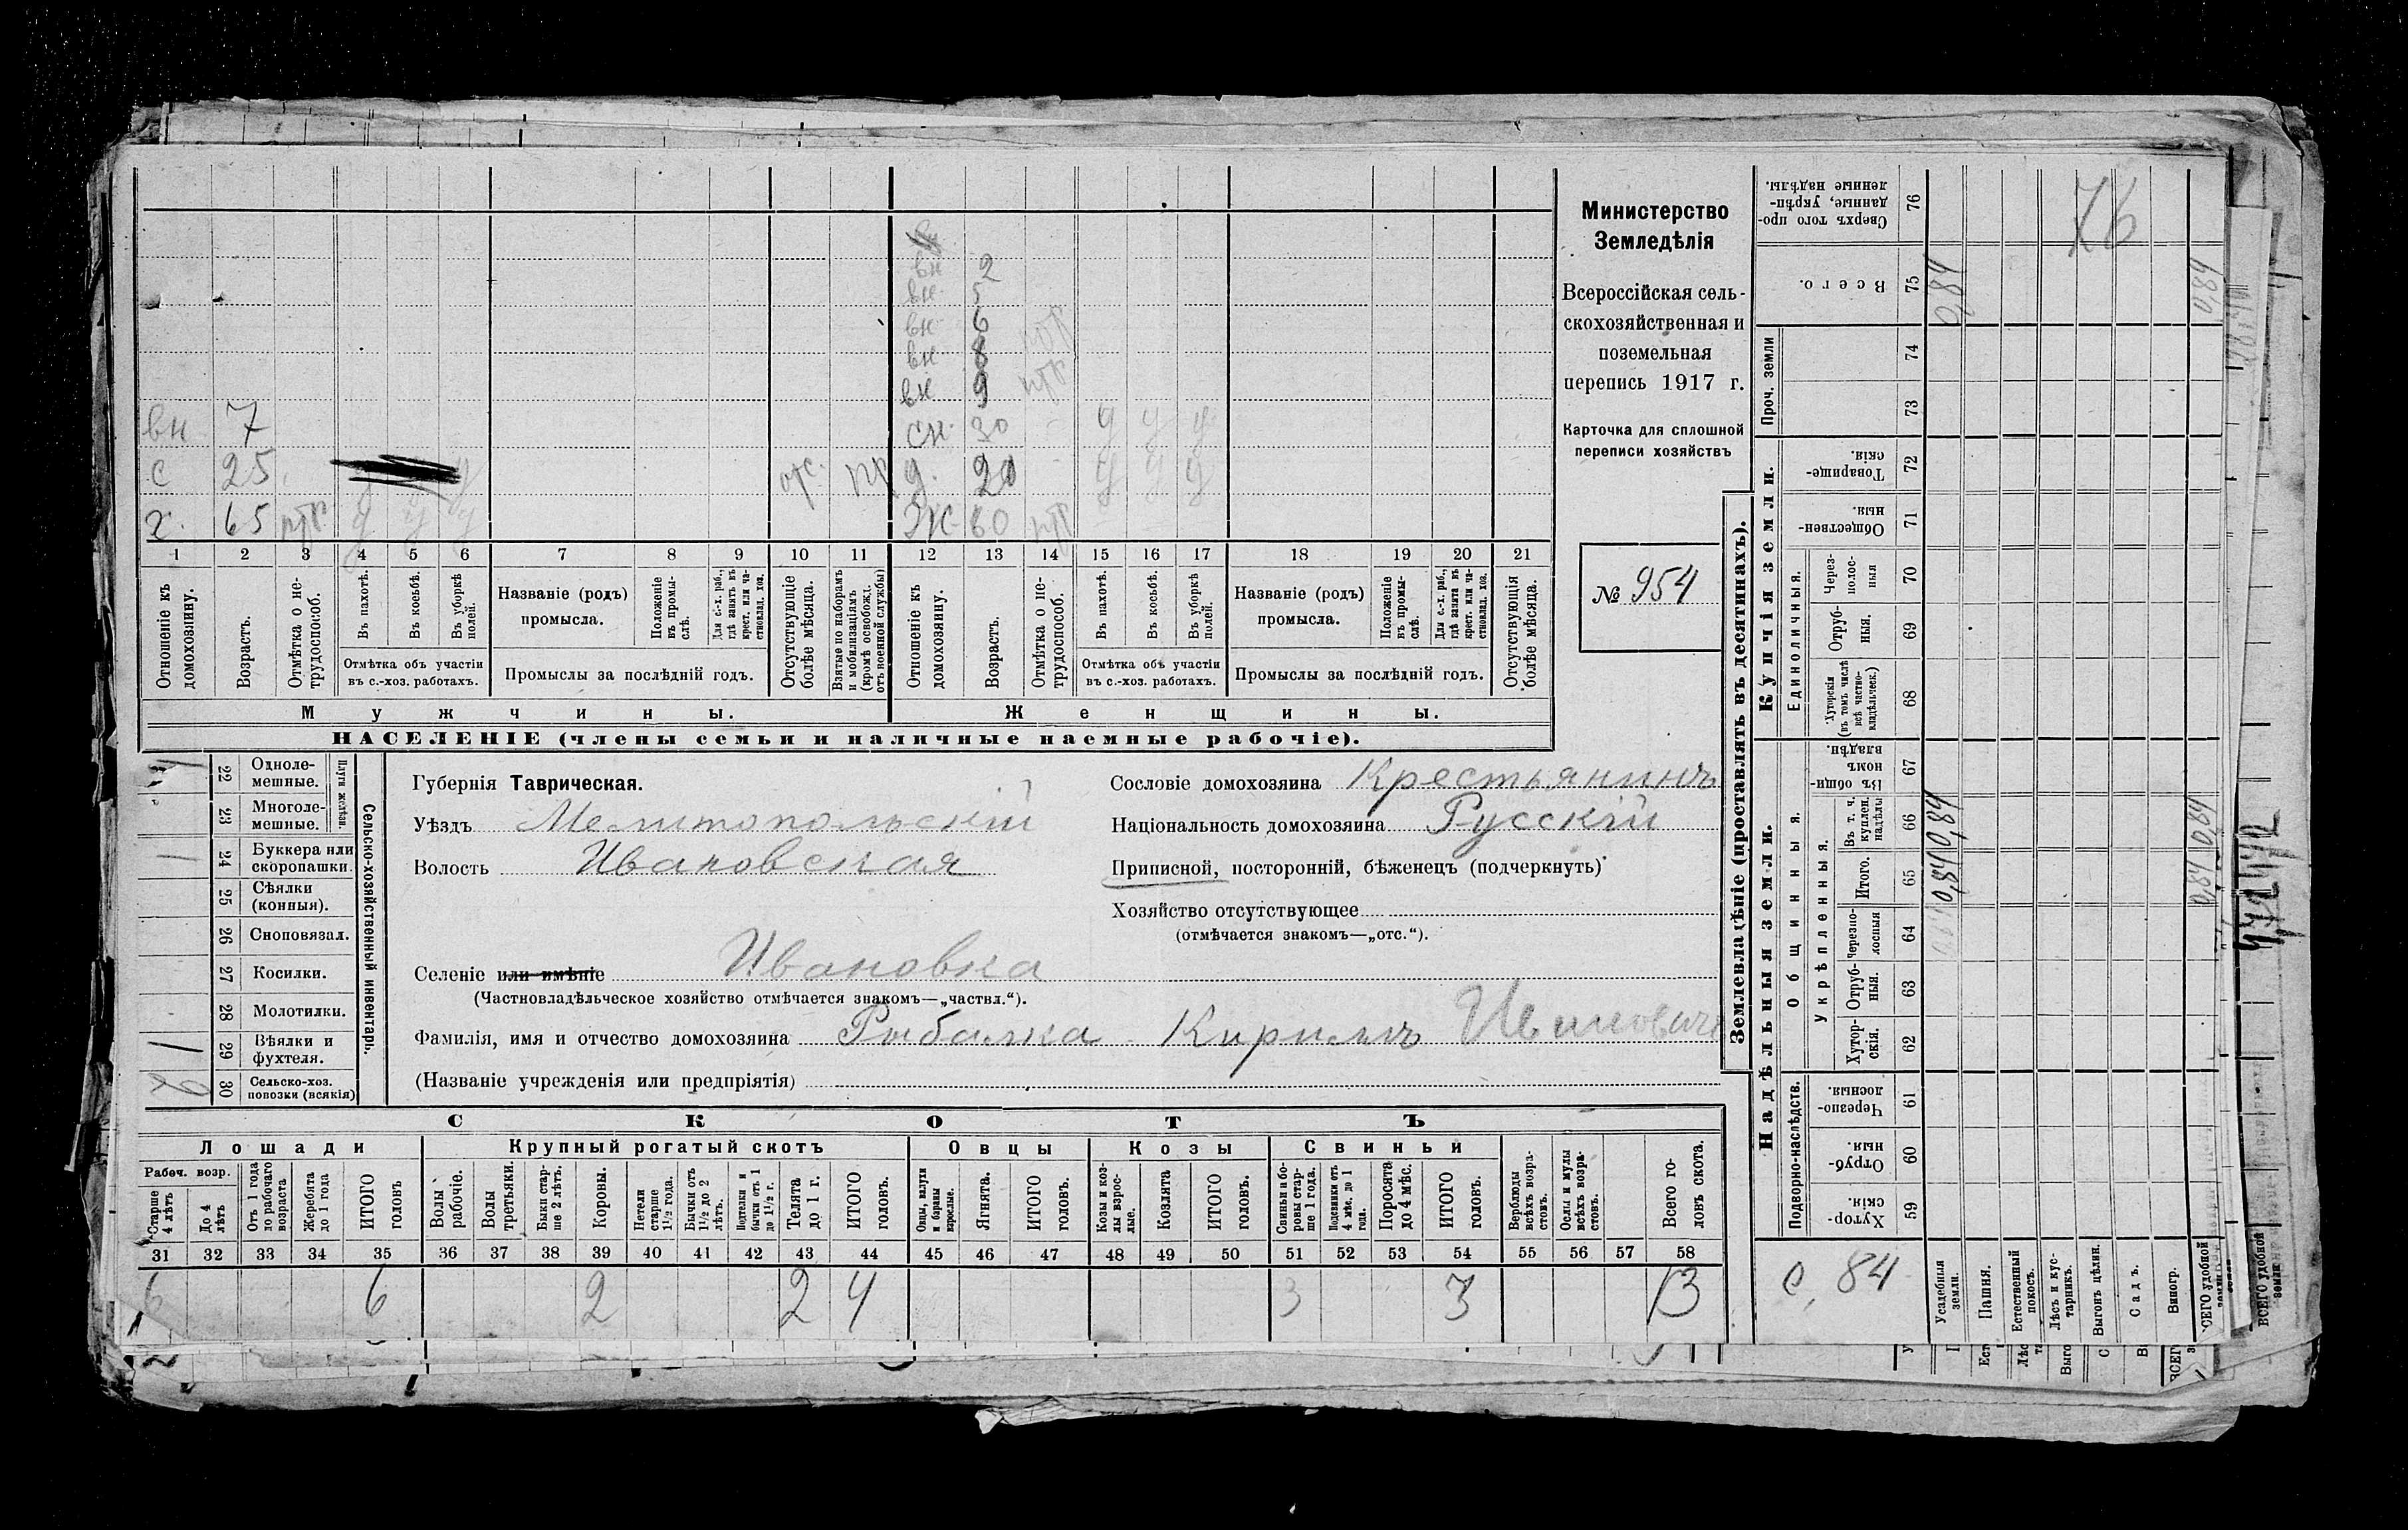 вн 2
вн 5
вн 6
вн 8
вн 9
вн 7 сн 30 у у у
с 25 отс. д. 20 у у у
х. 65 у у у Ж 60
1 2 3 4 5 6 7 8 9 10 11 12 13 14 15 16 17 18 19 20 21
Отношеніе къ домохозяину.
Возрастъ.
Отмѣтка о не-трудоспособ.
Въ пахотѣ.
Въ косьбѣ.
Въ уборкѣ полей.
Отмѣтка объ участіи
въ с.-хоз. работахъ.
Названіе (родъ)
промысла.
Положеніе въ промы-слѣ.
Для с.-х. раб., гдѣ занятъ въ крест. или ча-стновлад. хоз.
Промыслы за послѣдній годъ.
Отсутствующіе болѣе мѣсяца.
Взятые по наборамъ и мобилизаціямъ (кромѣ освобожд. отъ военной службы)
Отношеніе къ домохозяину.
Возрастъ.
Отмѣтка о не-трудоспособ.
Въ пахотѣ.
Въ косьбѣ.
Въ уборкѣ полей.
Отмѣтка объ участіи
въ с.-хоз. работахъ.
Названіе (родъ)
промысла.
Положеніе въ промы-слѣ.
Для с.-х. раб., гдѣ занята въ крест. или ча-стновлад. хоз.
Промыслы за послѣдній годъ.
Отсутствующія болѣе мѣсяца.
Мужчины.
Женщины.
НАСЕЛЕНІЕ (члены семьи и наличные наемные рабочіе).
Министерство
Земледѣлія
Всероссійская сель-
скохозяйственная и
поземельная
перепись 1917 г.
Карточка для сплошной
переписи хозяйствъ
№ 954
22 Одноле-мешные.
23 Многоле-мешные.
Плуги желѣзн.
24 Буккера или скоропашки.
25 Сѣялки (конныя).
26 Сноповязал.
27 Косилки.
28 Молотилки.
1 29 Вѣялки и фухтеля.
2 30 Сельско-хоз. повозки (всякія)
Сельско-хозяйственный инвентарь.
Губернія Таврическая.
Уѣздъ Мелитопольскій
Волость Ивановская
Селеніе или имѣніе Ивановка
(Частновладѣльческое хозяйство отмѣчается знакомъ—„частвл.“).
Фамилія, имя и отчество домохозяина Рыбалка Кирилъ Ивановичъ
(Названіе учрежденія или предпріятія)
Сословіе домохозяина Крестьянинъ
Національность домохозяина Русскій
Приписной, посторонній, бѣженецъ (подчеркнуть)
Хозяйство отсутствующее
(отмѣчается знакомъ—„отс.“).
СКОТЪ
Лошади
Крупный рогатый скотъ
Овцы
Козы
Свиньи
Рабоч. возр.
Старше 4 лѣтъ
До 4 лѣтъ
Отъ 1 года до рабочаго возраста
Жеребята до 1 года
ИТОГО головъ
Волы рабочіе.
Волы третьяки.
Быки стар-ше 2 лѣтъ.
Коровы.
Нетели старше 1½ года.
Бычки отъ 1½ до 2 лѣтъ.
Подтелки и бычки отъ 1 до 1½ г.
Телята до 1 г.
ИТОГО головъ.
Овцы, валухи и бараны взрослые.
Ягнята.
ИТОГО головъ.
Козы и коз-лы взрос-лые.
Козлята
ИТОГО головъ.
Свиньи и бо-ровы стар-ше 1 года.
Подсвинки отъ 4 мѣс. до 1 года.
Поросята до 4 мѣс.
ИТОГО головъ.
Верблюды всѣхъ возра-стовъ.
Ослы и мулы всѣхъ возра-стовъ.
Всего го-ловъ скота.
31 32 33 34 35 36 37 38 39 40 41 42 43 44 45 46 47 48 49 50 51 52 53 54 55 56 57 58
6 6 2 2 4 3 3 13
Землевладѣніе (проставлять въ десятинахъ).
Купчія земли.
Надѣльныя земли.
Сверхъ того про-данные, укрѣп-ленные надѣлы. 76
76
Всего. 75 0,84 0,84
Проч. земли 74
73
Товарище-скія. 72
Обществен-ныя. 71
Единоличныя.
Через-полос-ныя 70
Отруб-ныя. 69
Хуторскія (въ томъ числѣ всѣ частно-владѣльческ.) 68
Общинныя.
Въ общин-номъ владѣн. 67
Укрѣпленныя.
Въ т. ч. куплен. надѣлы 66 0,84 0,84
Итого. 65 0,84 0,84
Черезпо-лосныя 64
Отруб-ныя. 63
Хутор-скія. 62
Подворно-наслѣдств.
Черезпо-лосныя. 61
Отруб-ныя. 60
Хутор-скія. 59
0,84
Усадебныя земли.
Пашня.
Естественный покосъ.
Лѣсъ и кус-тарникъ.
Выгонъ цѣлин.
Садъ.
Виногр.
ВСЕГО удобной земли